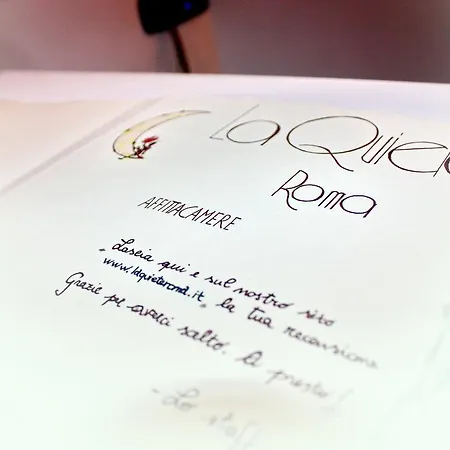 La Quiet
Roma
AFFITTACAMERE
Lascia qui e sul nostro sito
"www.laquieteroma.it" la tua recensione
Grazie per averci scelto. A presto!
- Lo staff